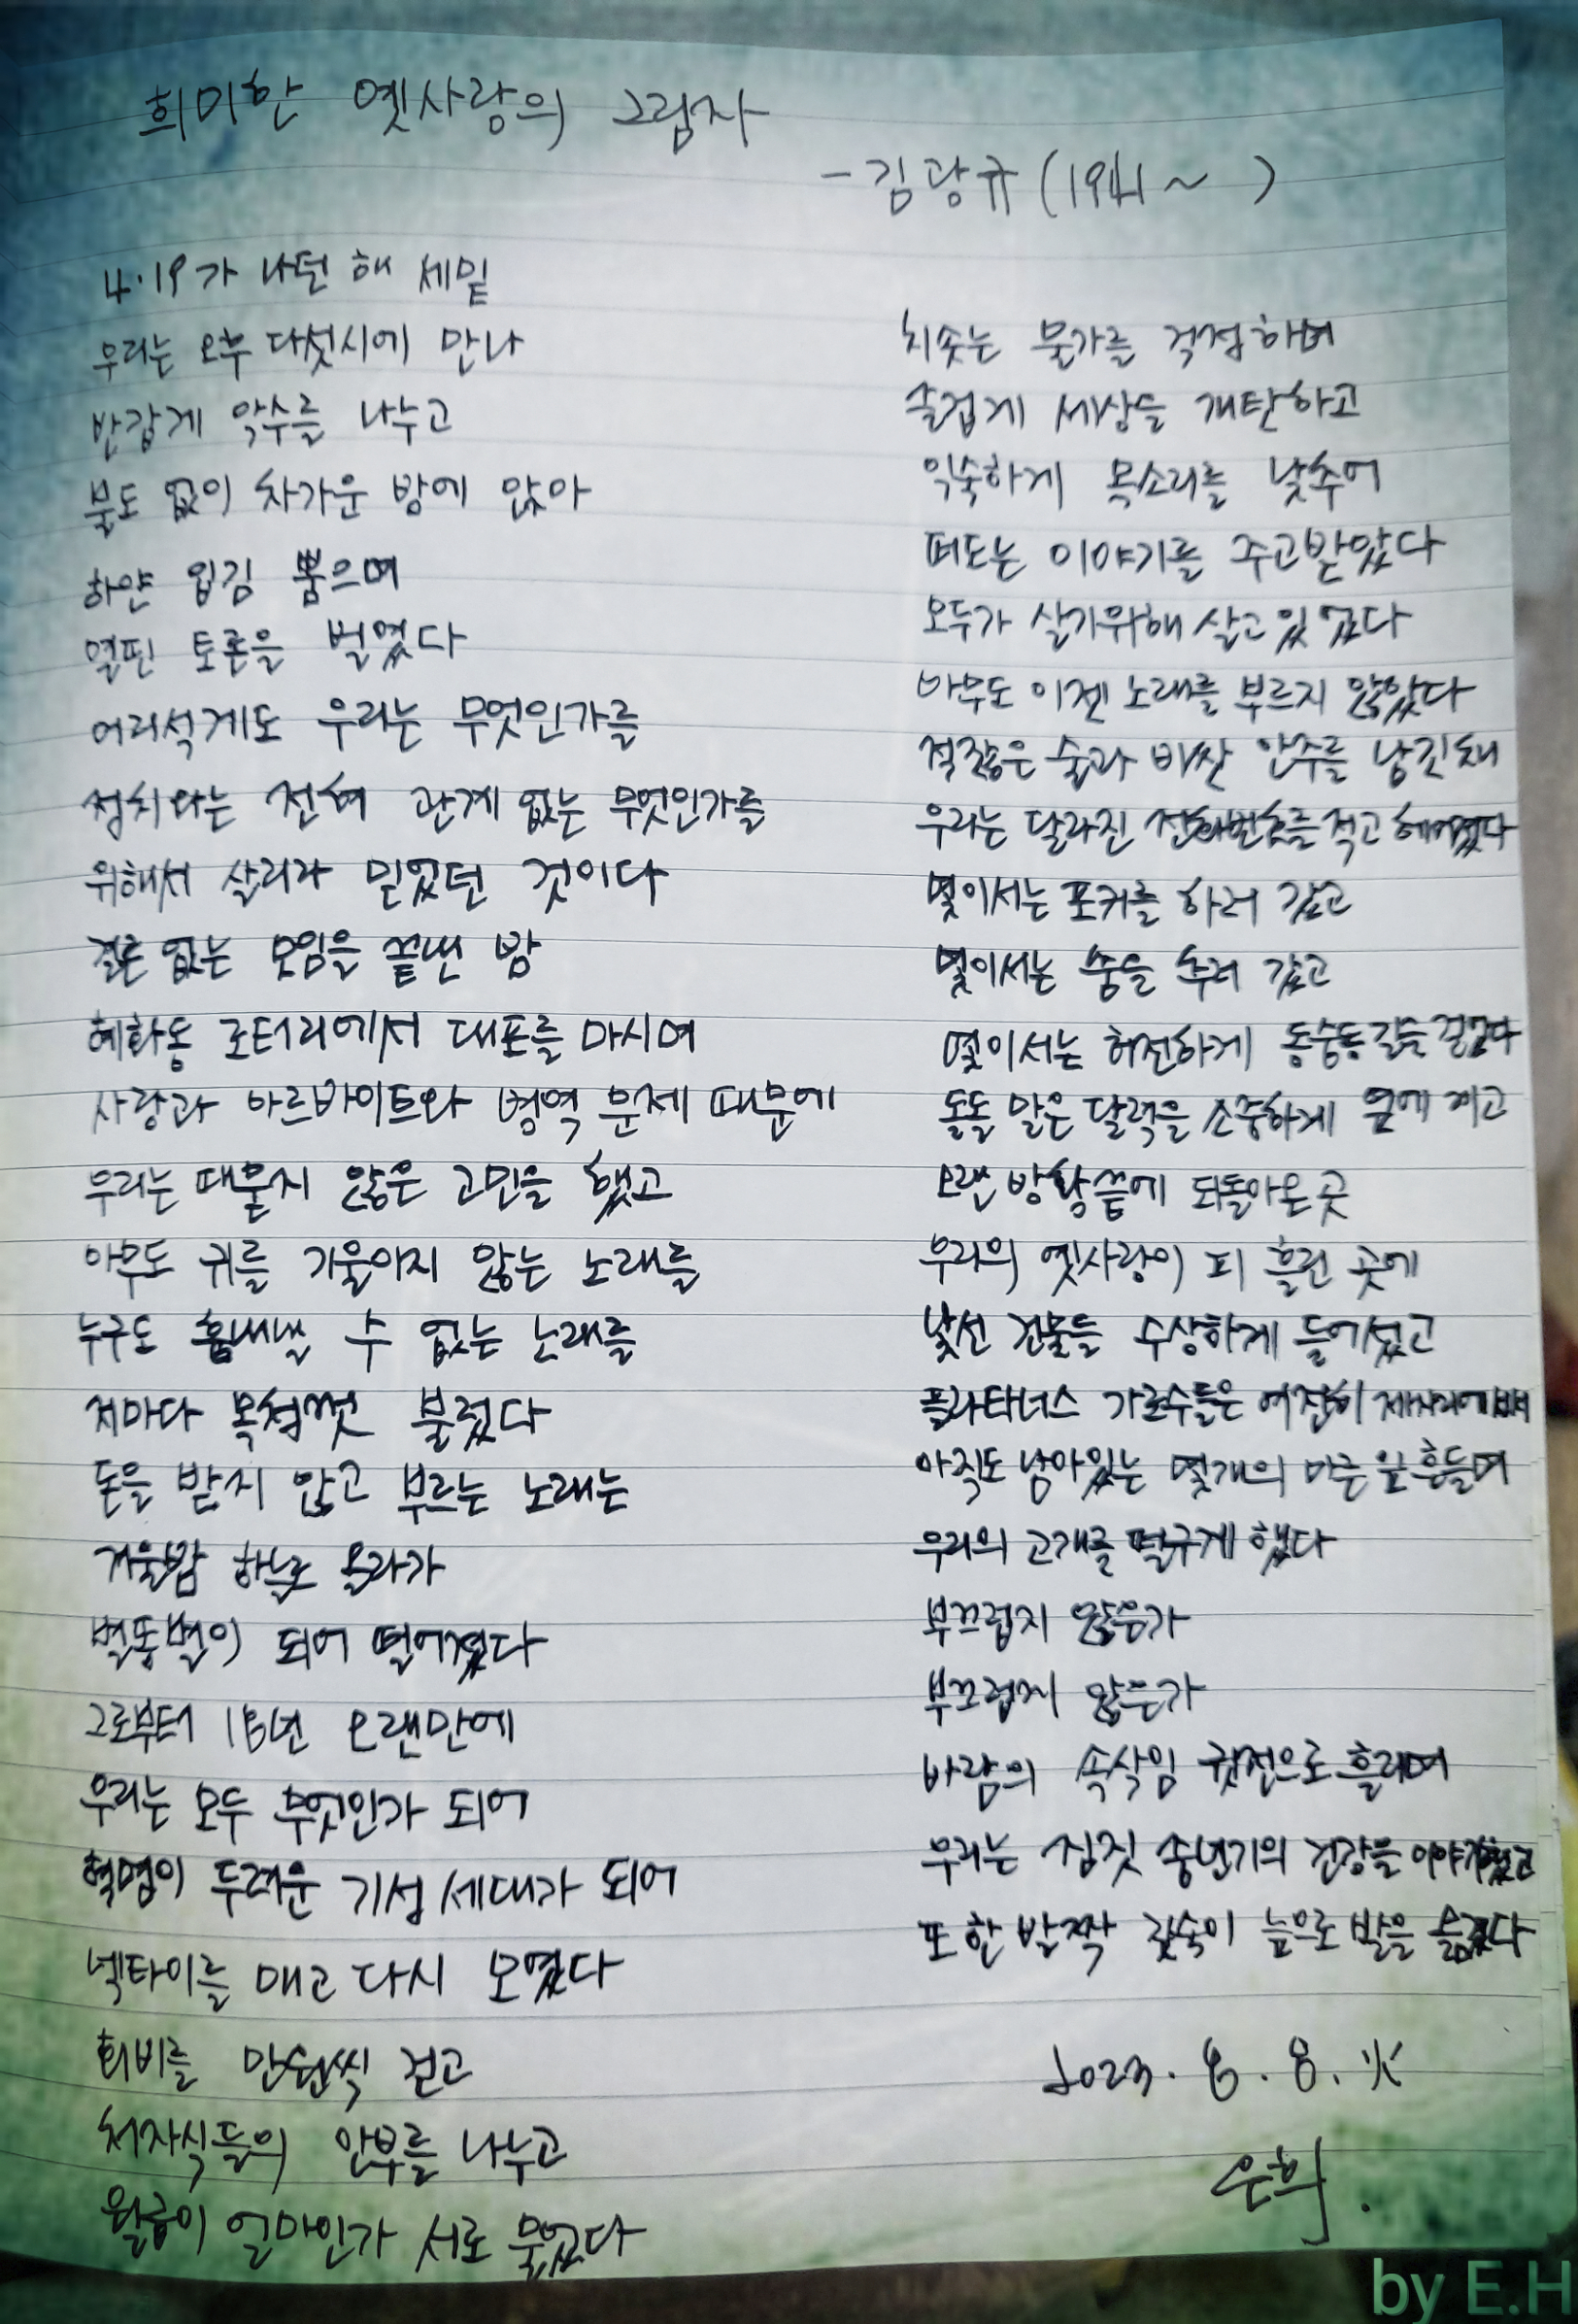 희미한 옛사랑의 그림자
- 김광규 (1941 ~ )
4·19가 나던 해 세밑
우리는 오후 다섯시에 만나
반갑게 악수를 나누고
불도 없이 차가운 방에 앉아
하얀 입김 뿜으며
열띤 토론을 벌였다
어리석게도 우리는 무엇인가를
정치와는 전혀 관계 없는 무엇인가를
위해서 살리라 믿었던 것이다
결론 없는 모임을 끝낸 밤
혜화동 로터리에서 대포를 마시며
사랑과 아르바이트와 병역 문제 때문에
우리는 때묻지 않은 고민을 했고
아무도 귀를 기울이지 않는 노래를
누구도 흉내낼 수 없는 노래를
저마다 목청껏 불렀다
돈을 받지 않고 부르는 노래는
겨울밤 하늘로 올라가
별똥별이 되어 떨어졌다
그로부터 18년 오랜만에
우리는 모두 무엇인가 되어
혁명이 두려운 기성 세대가 되어
넥타이를 매고 다시 모였다
회비를 만원씩 걷고
처자식들의 안부를 나누고
월급이 얼마인가 서로 물었다
치솟는 물가를 걱정하며
즐겁게 세상을 개탄하고
익숙하게 목소리를 낮추어
떠도는 이야기를 주고받았다
모두가 살기위해 살고있었다
아무도 이젠 노래를 부르지 않았다
적잖은 술과 비싼 안주를 남긴채
우리는 달라진 전화번호를 적고 헤어졌다
몇이서는 포커를 하러 갔고
몇이서는 춤을 추러 갔고
몇이서는 허전하게 동숭동 길을 걸었다
돌돌 말은 달력을 소중하게 옆에 끼고
오랜 방황 끝에 되돌아온 곳
우리의 옛사랑이 피 흘린 곳에
낯선 건물들 수상하게 들어섰고
플라타너스 가로수들은 여전히 제자리에 서서
아직도 남아있는 몇개의 마른 잎 흔들며
우리의 고개를 떨구게 했다
부끄럽지 않은가
부끄럽지 않은가
바람의 속삭임 귓전으로 흘리며
우리는 짐짓 중년기의 건강을 이야기했고
또 한 발짝 깊숙이 늪으로 발을 옮겼다
2023. 8. 8. 火
은희.
by E.H